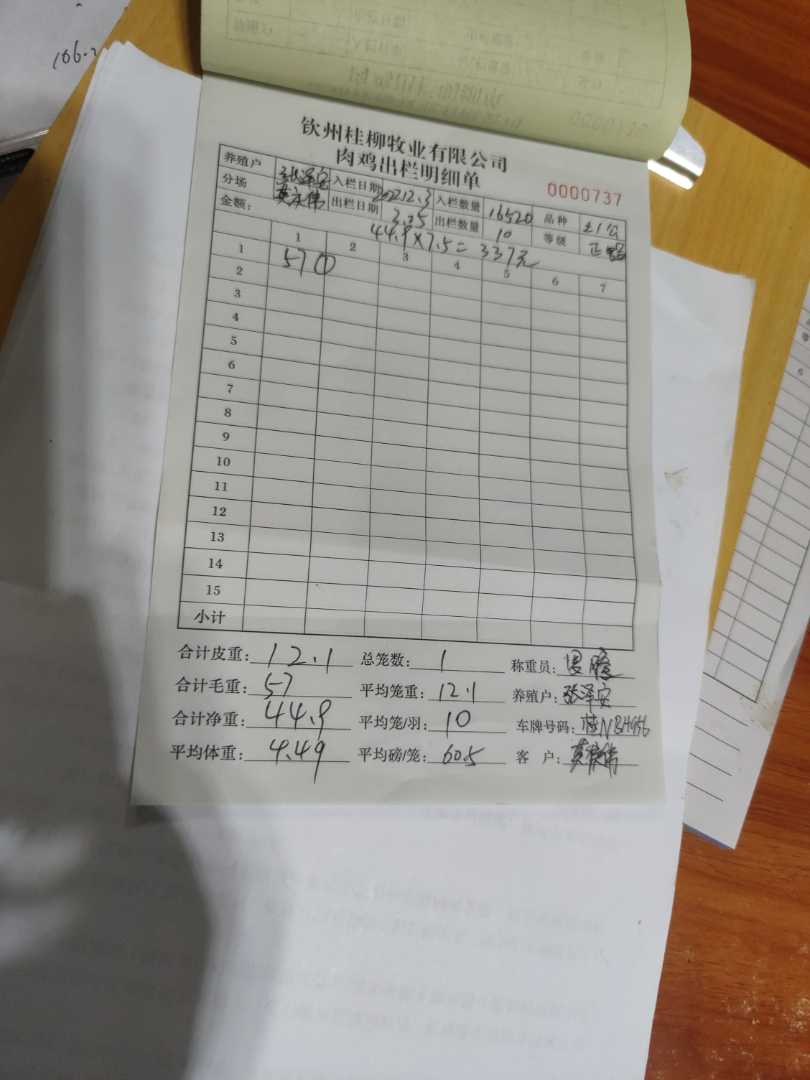 106.2
钦州桂柳牧业有限公司
肉鸡出栏明细单
0000737
养殖户 张泽安 入栏日期 2022.12.3 入栏数量 16520 品种 土1公
分场 黄庆伟 出栏日期 3.25 出栏数量 10 等级 正品
金额: 44.9×7.5=337元
1 2 3 4 5 6 7
1 57①
2
3
4
5
6
7
8
9
10
11
12
13
14
15
小计
合计皮重: 12.1 总笼数: 1 称重员:
合计毛重: 57 平均笼重: 12.1 养殖户: 张泽安
合计净重: 44.9 平均笼/羽: 10 车牌号码:
平均体重: 4.49 平均磅/笼: 60.5 客 户: 黄庆伟